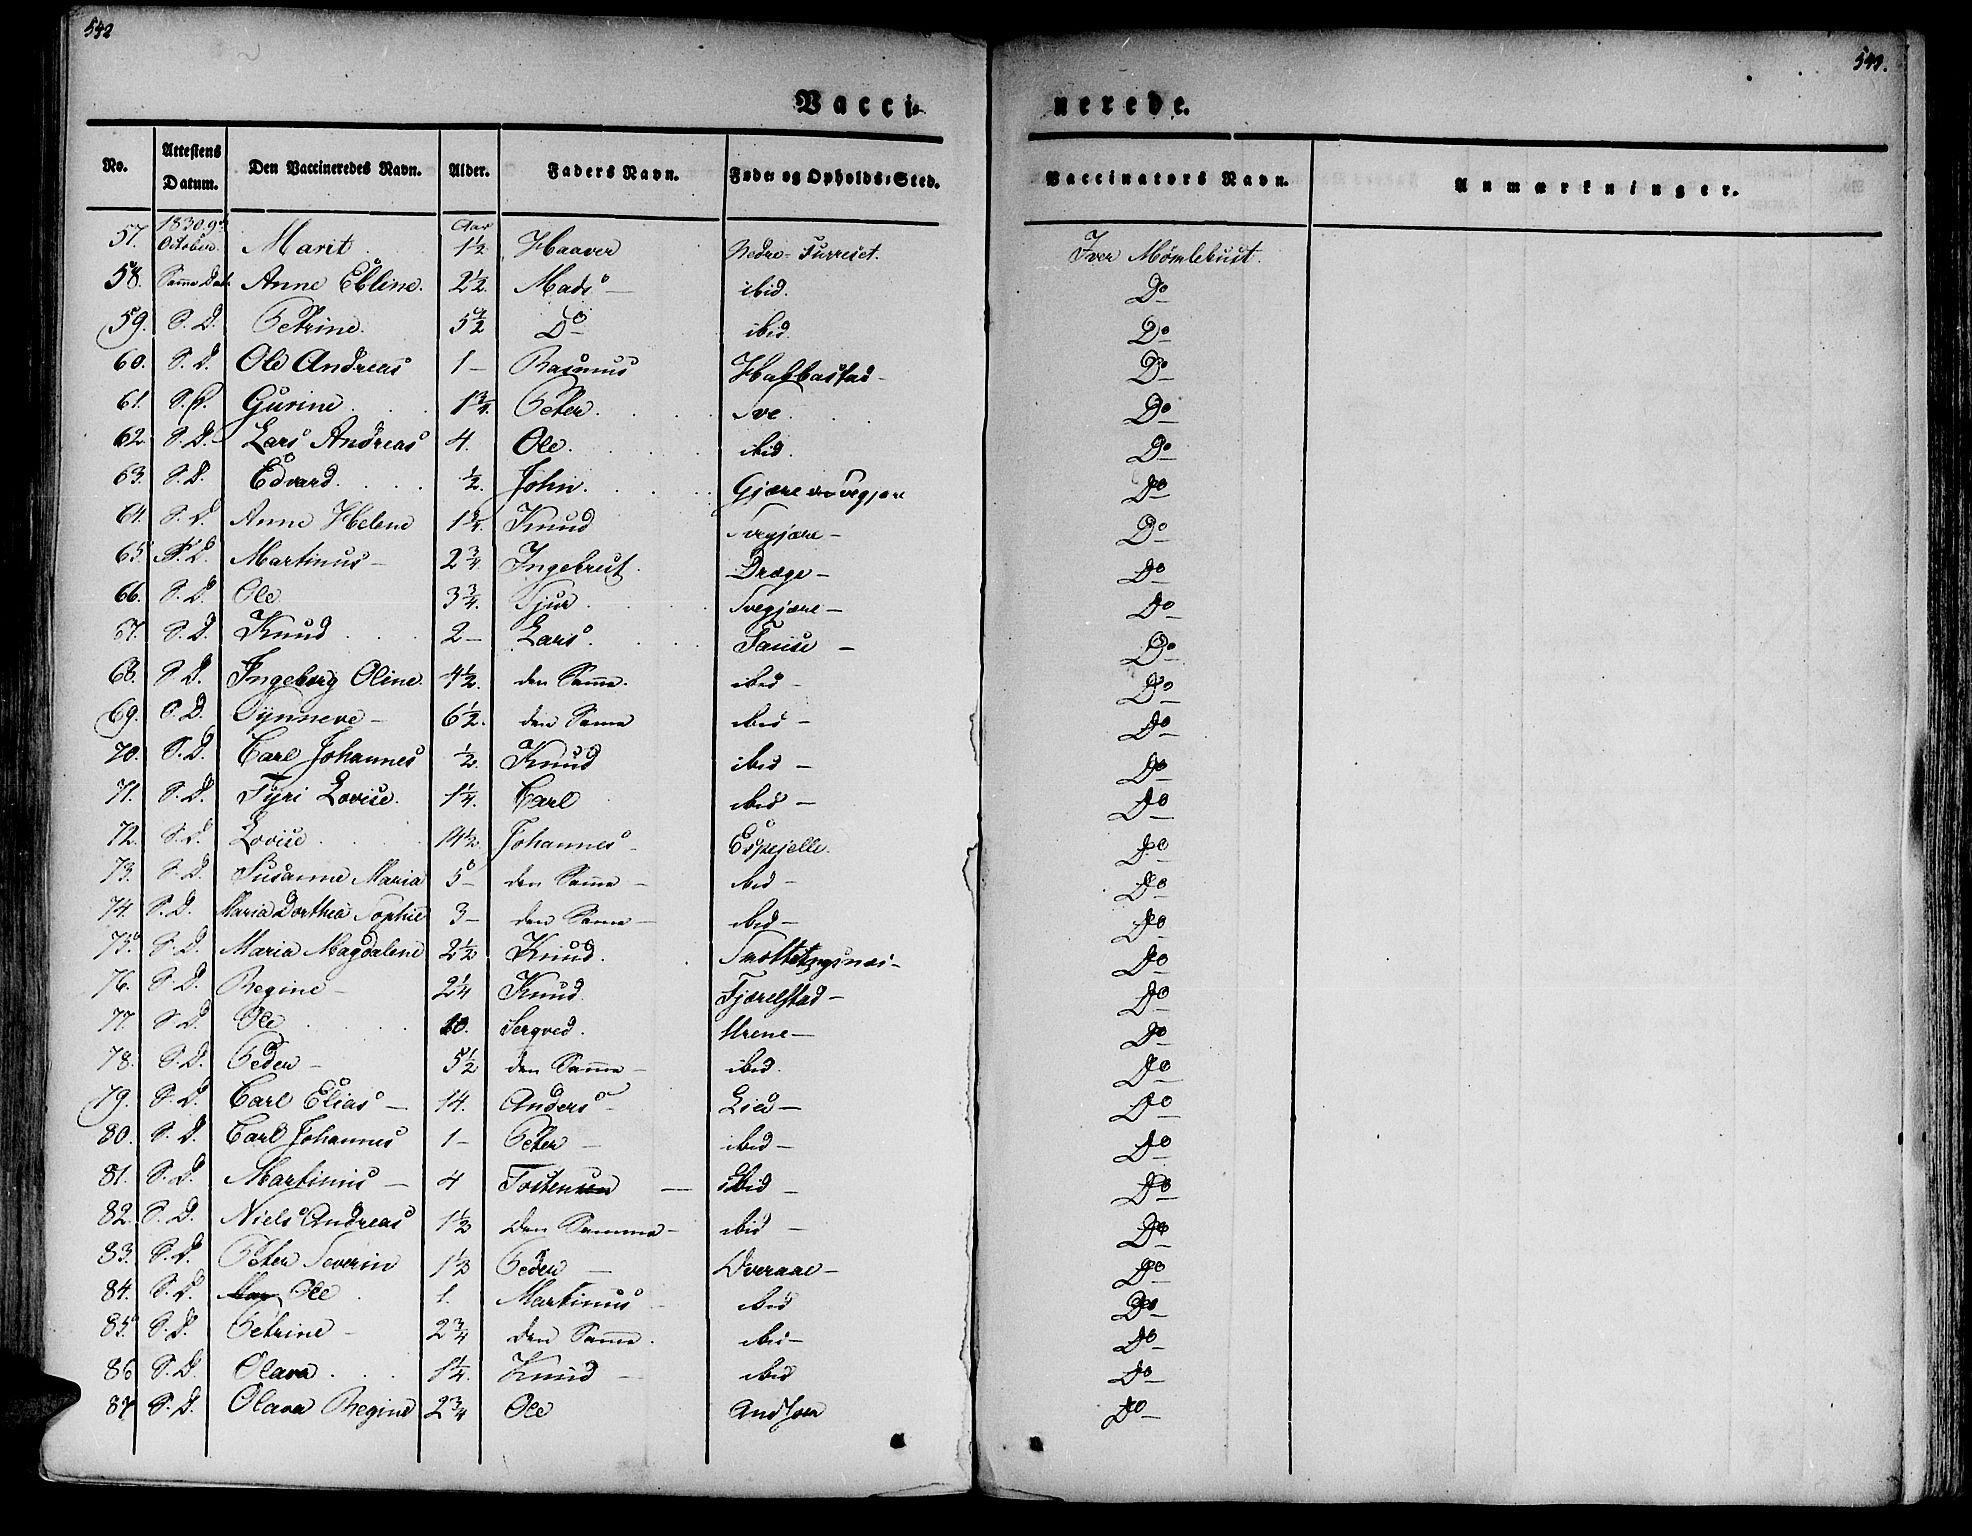 542
549.
Vacci-
nerede.
No. Attestens Datum. Den Vaccineredes Navn. Alder. Faders Navn. Føde- og Opholds-Sted. Vaccinators Navn. Anmærkninger.
57. 1830 9de October. Marit Aar 1½ Haaver Nedre-Furreset. Iver Mømlebust.
58. Samme Dat. Anne Elline. 2½. Mads – ibid. Do
59. S. D. Petrine. 5½ Do ibid. Do
60. S. D. Ole Andreas 1 – Rasmus Habbastad – Do
61. S. D. Gurine 1¾. Peter. Sve. Do
62. S. D. Lars Andreas 4. Ole. ibid. Do
63. S. D. Edvard. ½. John. Gjære Do
64. S. D. Anne Helene Knud Svegjære – Do
65. S. D. Martinus – 2¾ Ingebret. Drage – Do
66. S. D. Ole 3¾. Sjur. Svegjære – Do
67. S. D. Knud 2 – Lars. Fause – Do
68. S. D. Ingeborg Oline. 4½. den Samme. ibid – Do
69. S. D. Synneve – 6½. den Samme ibid – Do
70. S. D. Carl Johannes ½. Knud ibid – Do
71. S. D. Syri Lovise. 1¼. Carl ibid – Do
72. S. D. Lovise 14½. Johannes – Espejelle. Do
73. S. D. Susanne Maria 5 – den Samme – ibid – Do
74. S. D. Maria Dorthea Sophie 3 – den Samme – ibid – Do
75. S. D. Maria Magdalene 2½ Knud. Do
76. S. D. Regine – 2¼ Knud. Fjærelstad – Do
77. S. D. Ole 10. Sergved. Urene – Do
78. S. D. Peder – 5½ den Samme – ibid. Do
79. S. D. Carl Elias – 14. Anders – Lied – Do
80. S. D. Carl Johannes 1 – Peter – ibid – Do
81. S. D. Martinus – 4 Tostensen – ibid – Do
82. S. D. Niels Andreas 1½ den Samme – ibid – Do
83. S. D. Peter Severin 1½ Peder – Overaae – Do
84. S. D. Ole 1. Martinus – ibid Do
85. S. D. Petrine – 2¾ den Samme. ibid – Do
86 S. D. Olava 1¼. Knud – ibid Do
87 S. D. Olava Regine 2¾ Ole Do